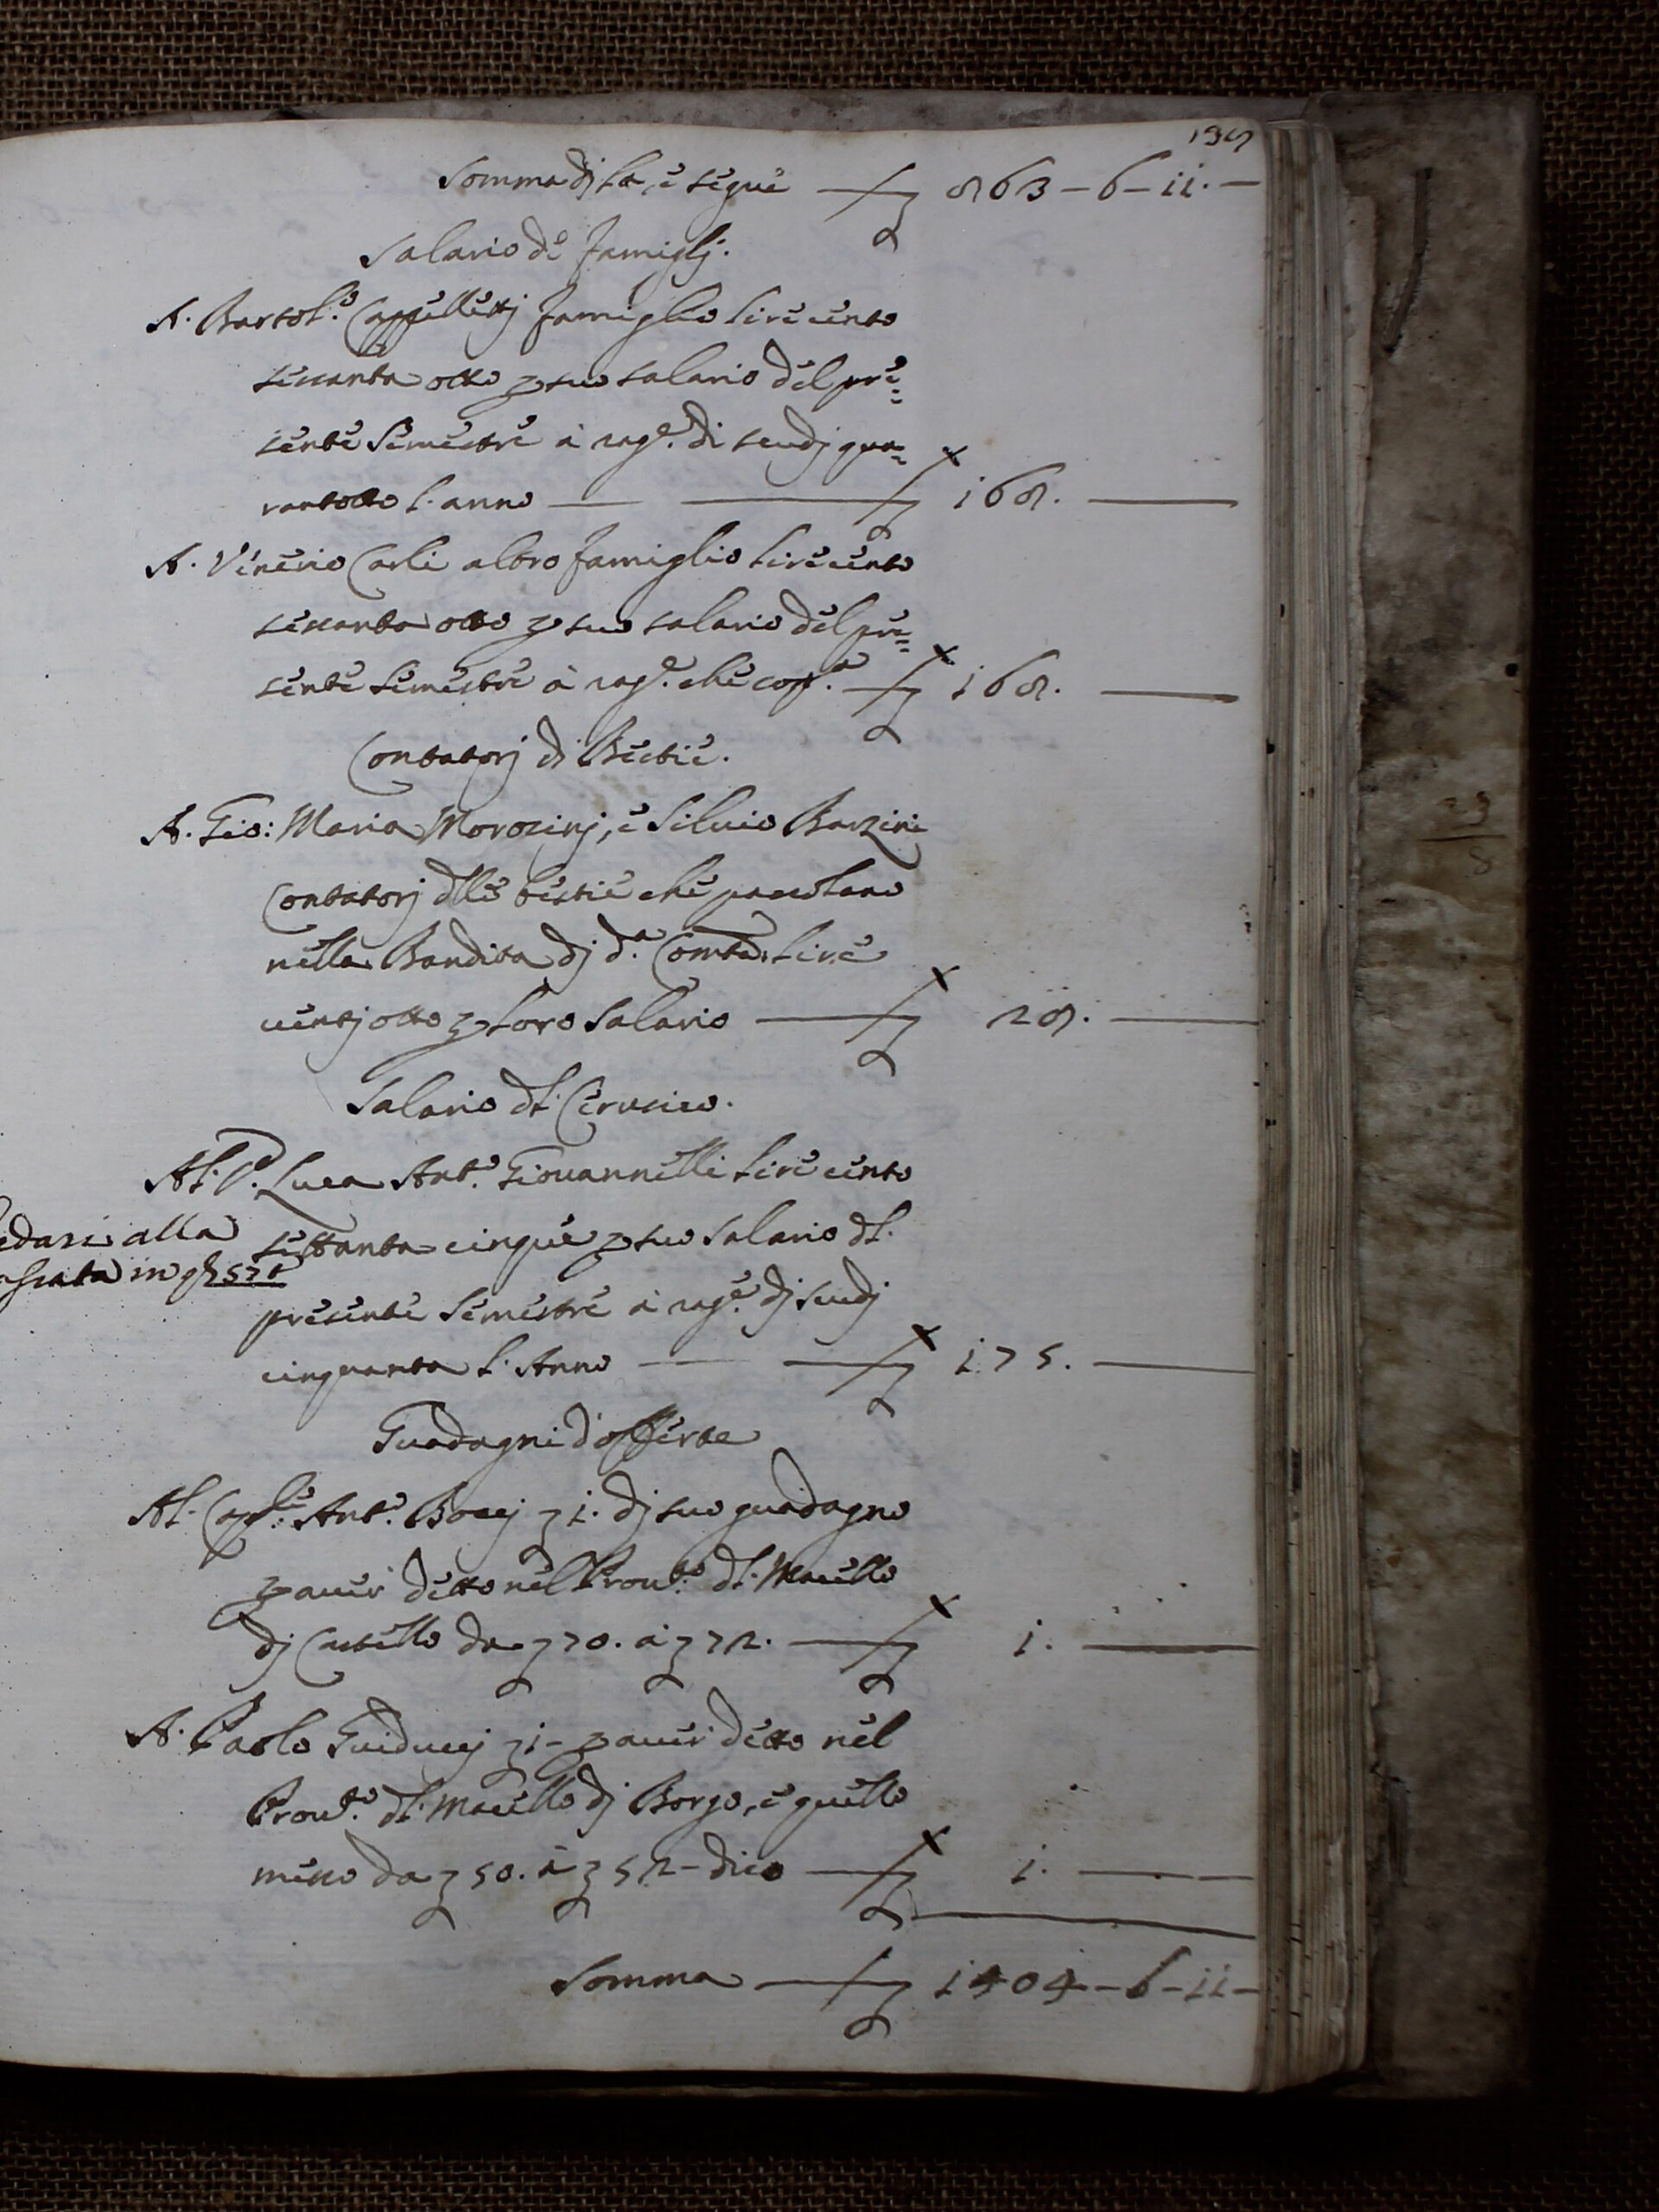 Somma di là, è segue — £ 863 – 6 – 11. –
Salario de famiglj.
A. Bartol.º Cappellettj famiglio lire cento
sessanta otto p suo salario del pre=
sente Semestre à rag.e di scudj qua=
rantotto l. anno — £ 168. —
A. Venerio Carli altro famiglio lire cento
sessanta otto p suo salario del pre=
sente semestre à rag.e che cop.a — £ 168. —
Contatorj di Bestie.
A. Gio: Maria Morozinj, è Silvio Barzini
Contatorj dlle bestie che pascolano
nella Bandita dj d.a Comtà. lire
ventj otto p loro salario — £ 28. —
Salario dl. Cerusico.
Al. S. Luca Ant.º Giovannelli lire cento
settanta cinque p suo salario dl.
presente Semestre à rag.e dj scudj
cinquanta l. Anno — £ 175. —
edasi alla
in 578
Guadagni d'offerte
Al. Cap.º Ant.º Boccj £ 1. dj suo guadagno
p aver detto nel Prou.to dl. Macello
dj Castello da £ 70. à £ 72. — £ 1. —
A. Paolo Guiduccj £ 1 – p aver detto nel
Prou.to dl. Macello dj Borgo, è quello
messo da £ 50. à £ 52 – dico — £ 1. —
Somma — £ 1404 – 6 – 11 –